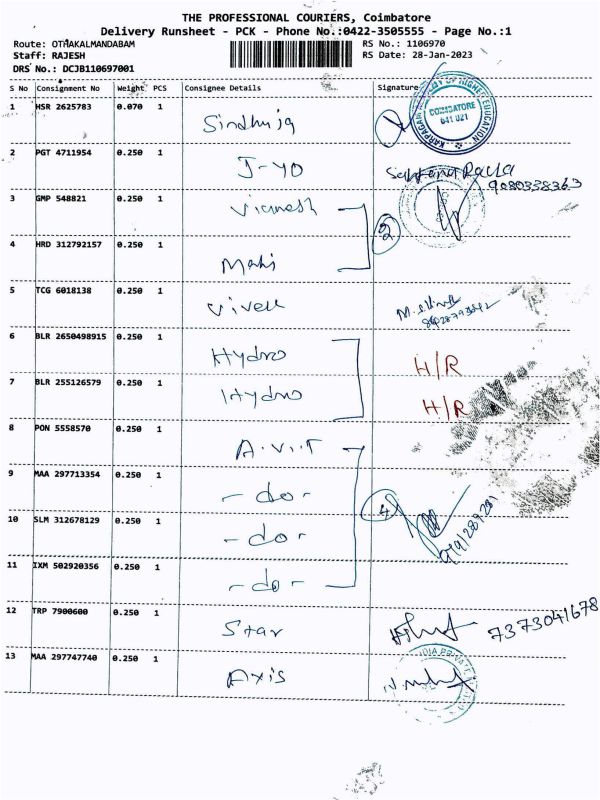 THE PROFESSIONAL COURIERS, Coimbatore
Delivery Runsheet - PCK - Phone No.:0422-3505555 - Page No.:1
Route: OTHAKALMANDABAM RS No.: 1106970
Staff: RAJESH RS Date: 28-Jan-2023
DRS No.: DCJB110697001
S No Consignment No Weight PCS Consignee Details Signature
1 HSR 2625783 0.070 1 Sindhuja
KARPAGAM OF HIGHER EDUCATION COIMBATORE 641 021
2 PGT 4711954 0.250 1 J-40
9080338363
3 GMP 548821 0.250 1 Vignesh
2
4 HRD 312792157 0.250 1 Mahi
5 TCG 6018138 0.250 1
6 BLR 2650498915 0.250 1 Hydro H/R
7 BLR 255126579 0.250 1 Hydro H/R
8 PON 5558570 0.250 1 A.V.I.T
9 MAA 297713354 0.250 1 -do-
4
10 SLM 312678129 0.250 1 -do-
11 IXM 502920356 0.250 1 -do-
12 TRP 7900600 0.250 1 Star 7373041678
13 MAA 297747740 0.250 1 Axis